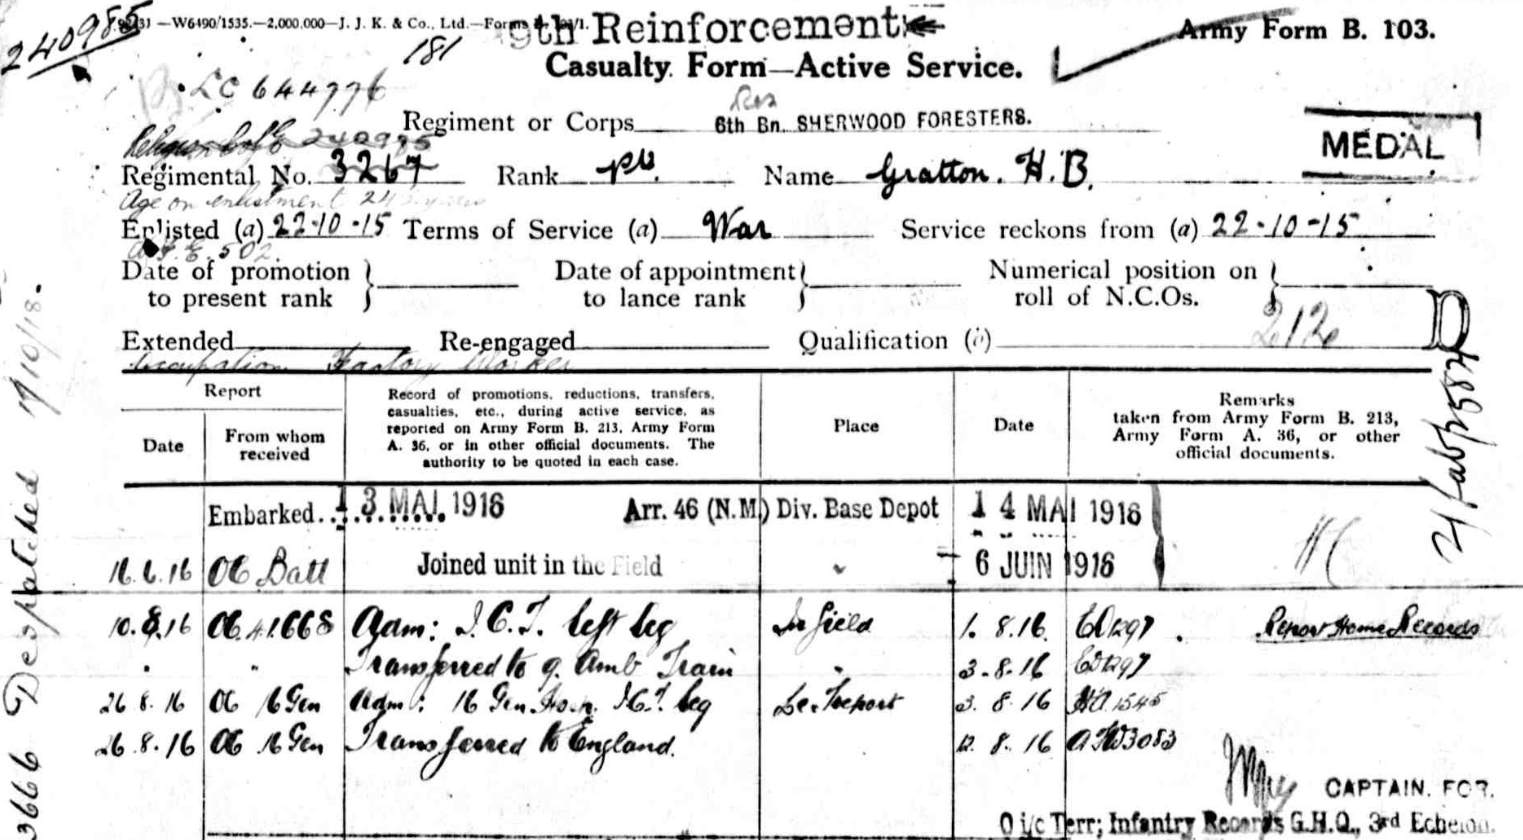 240985
—W6490/1535.—2,000,000—J. J. K. & Co., Ltd.—Forms
9th Reinforcement
Army Form B. 103.
181
Casualty Form—Active Service.
LC 644776
Res
Regiment or Corps 6th Bn. SHERWOOD FORESTERS.
MEDAL
Religion CofE 240985
Regimental No. 3267 Rank Pte. Name Gratton. H.B.
Age on enlistment 24 years
Enlisted (a) 22-10-15 Terms of Service (a) War Service reckons from (a) 22-10-15
A.F.E. 502.
Date of promotion to present rank
Date of appointment to lance rank
Numerical position on roll of N.C.Os.
Extended Re-engaged Qualification (b)
Occupation Factory Worker
Report
Date
From whom received
Record of promotions, reductions, transfers, casualties, etc., during active service, as reported on Army Form B. 213, Army Form A. 36, or in other official documents. The authority to be quoted in each case.
Place
Date
Remarks taken from Army Form B. 213, Army Form A. 36, or other official documents.
Embarked.. 13 MAI 1916 Arr. 46 (N.M.) Div. Base Depot 14 MAI 1916
16.6.16 OC Batt Joined unit in the Field " - 6 JUIN 1916
10.8.16 OC Adm: I.C.T. left leg In field 1.8.16
Report Home Records
" " Transferred to 9. Amb Train " 3.8.16
26.8.16 OC 16 Gen Adm: 16 Gen. Hosp. I.C.T. leg Le Treport 3.8.16 HA 1545
26.8.16 OC 16 Gen Transferred to England. 12.8.16 AFW3083
CAPTAIN. FOR.
O i/c Terr; Infantry Records G.H.Q., 3rd Echelon.
3666 Despatched